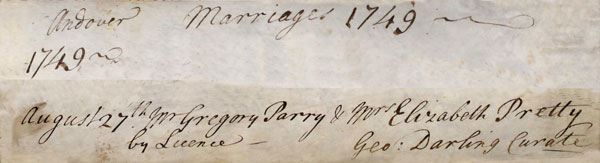 Andover Marriages 1749
1749
August 27th Mr Gregory Parry & Mrs Elizabeth Pretty
by Licence Geo: Darling Curate